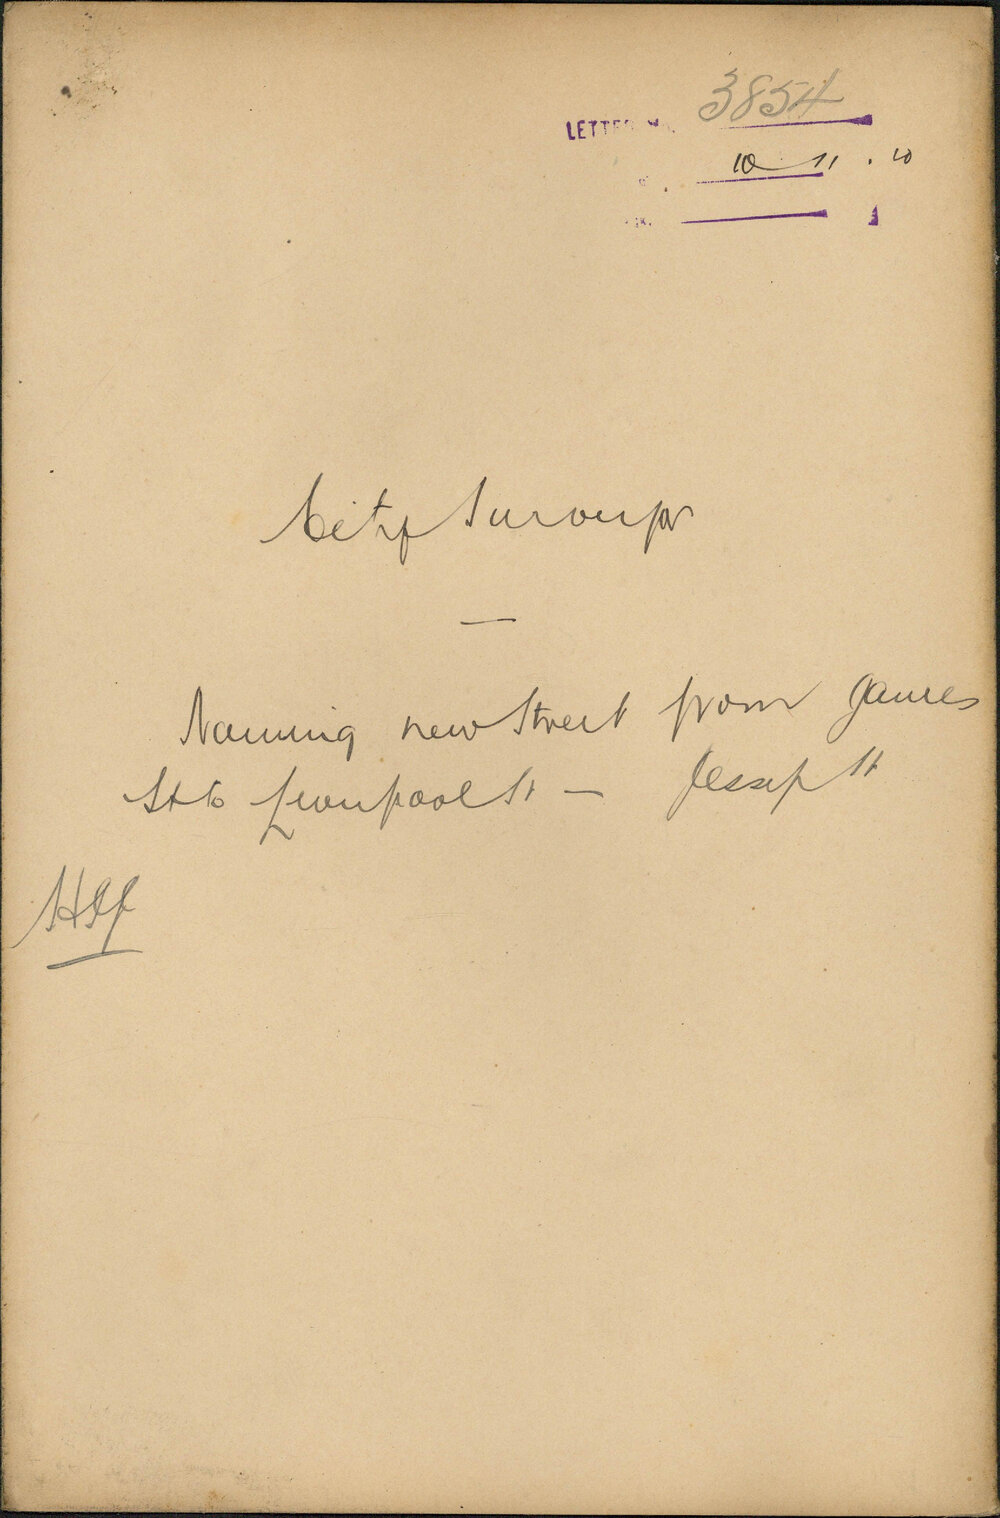 LETTER No. 3854
10 11 . 10
City Surveyor
—
Naming new Street from James
St to Liverpool St — Jessep St